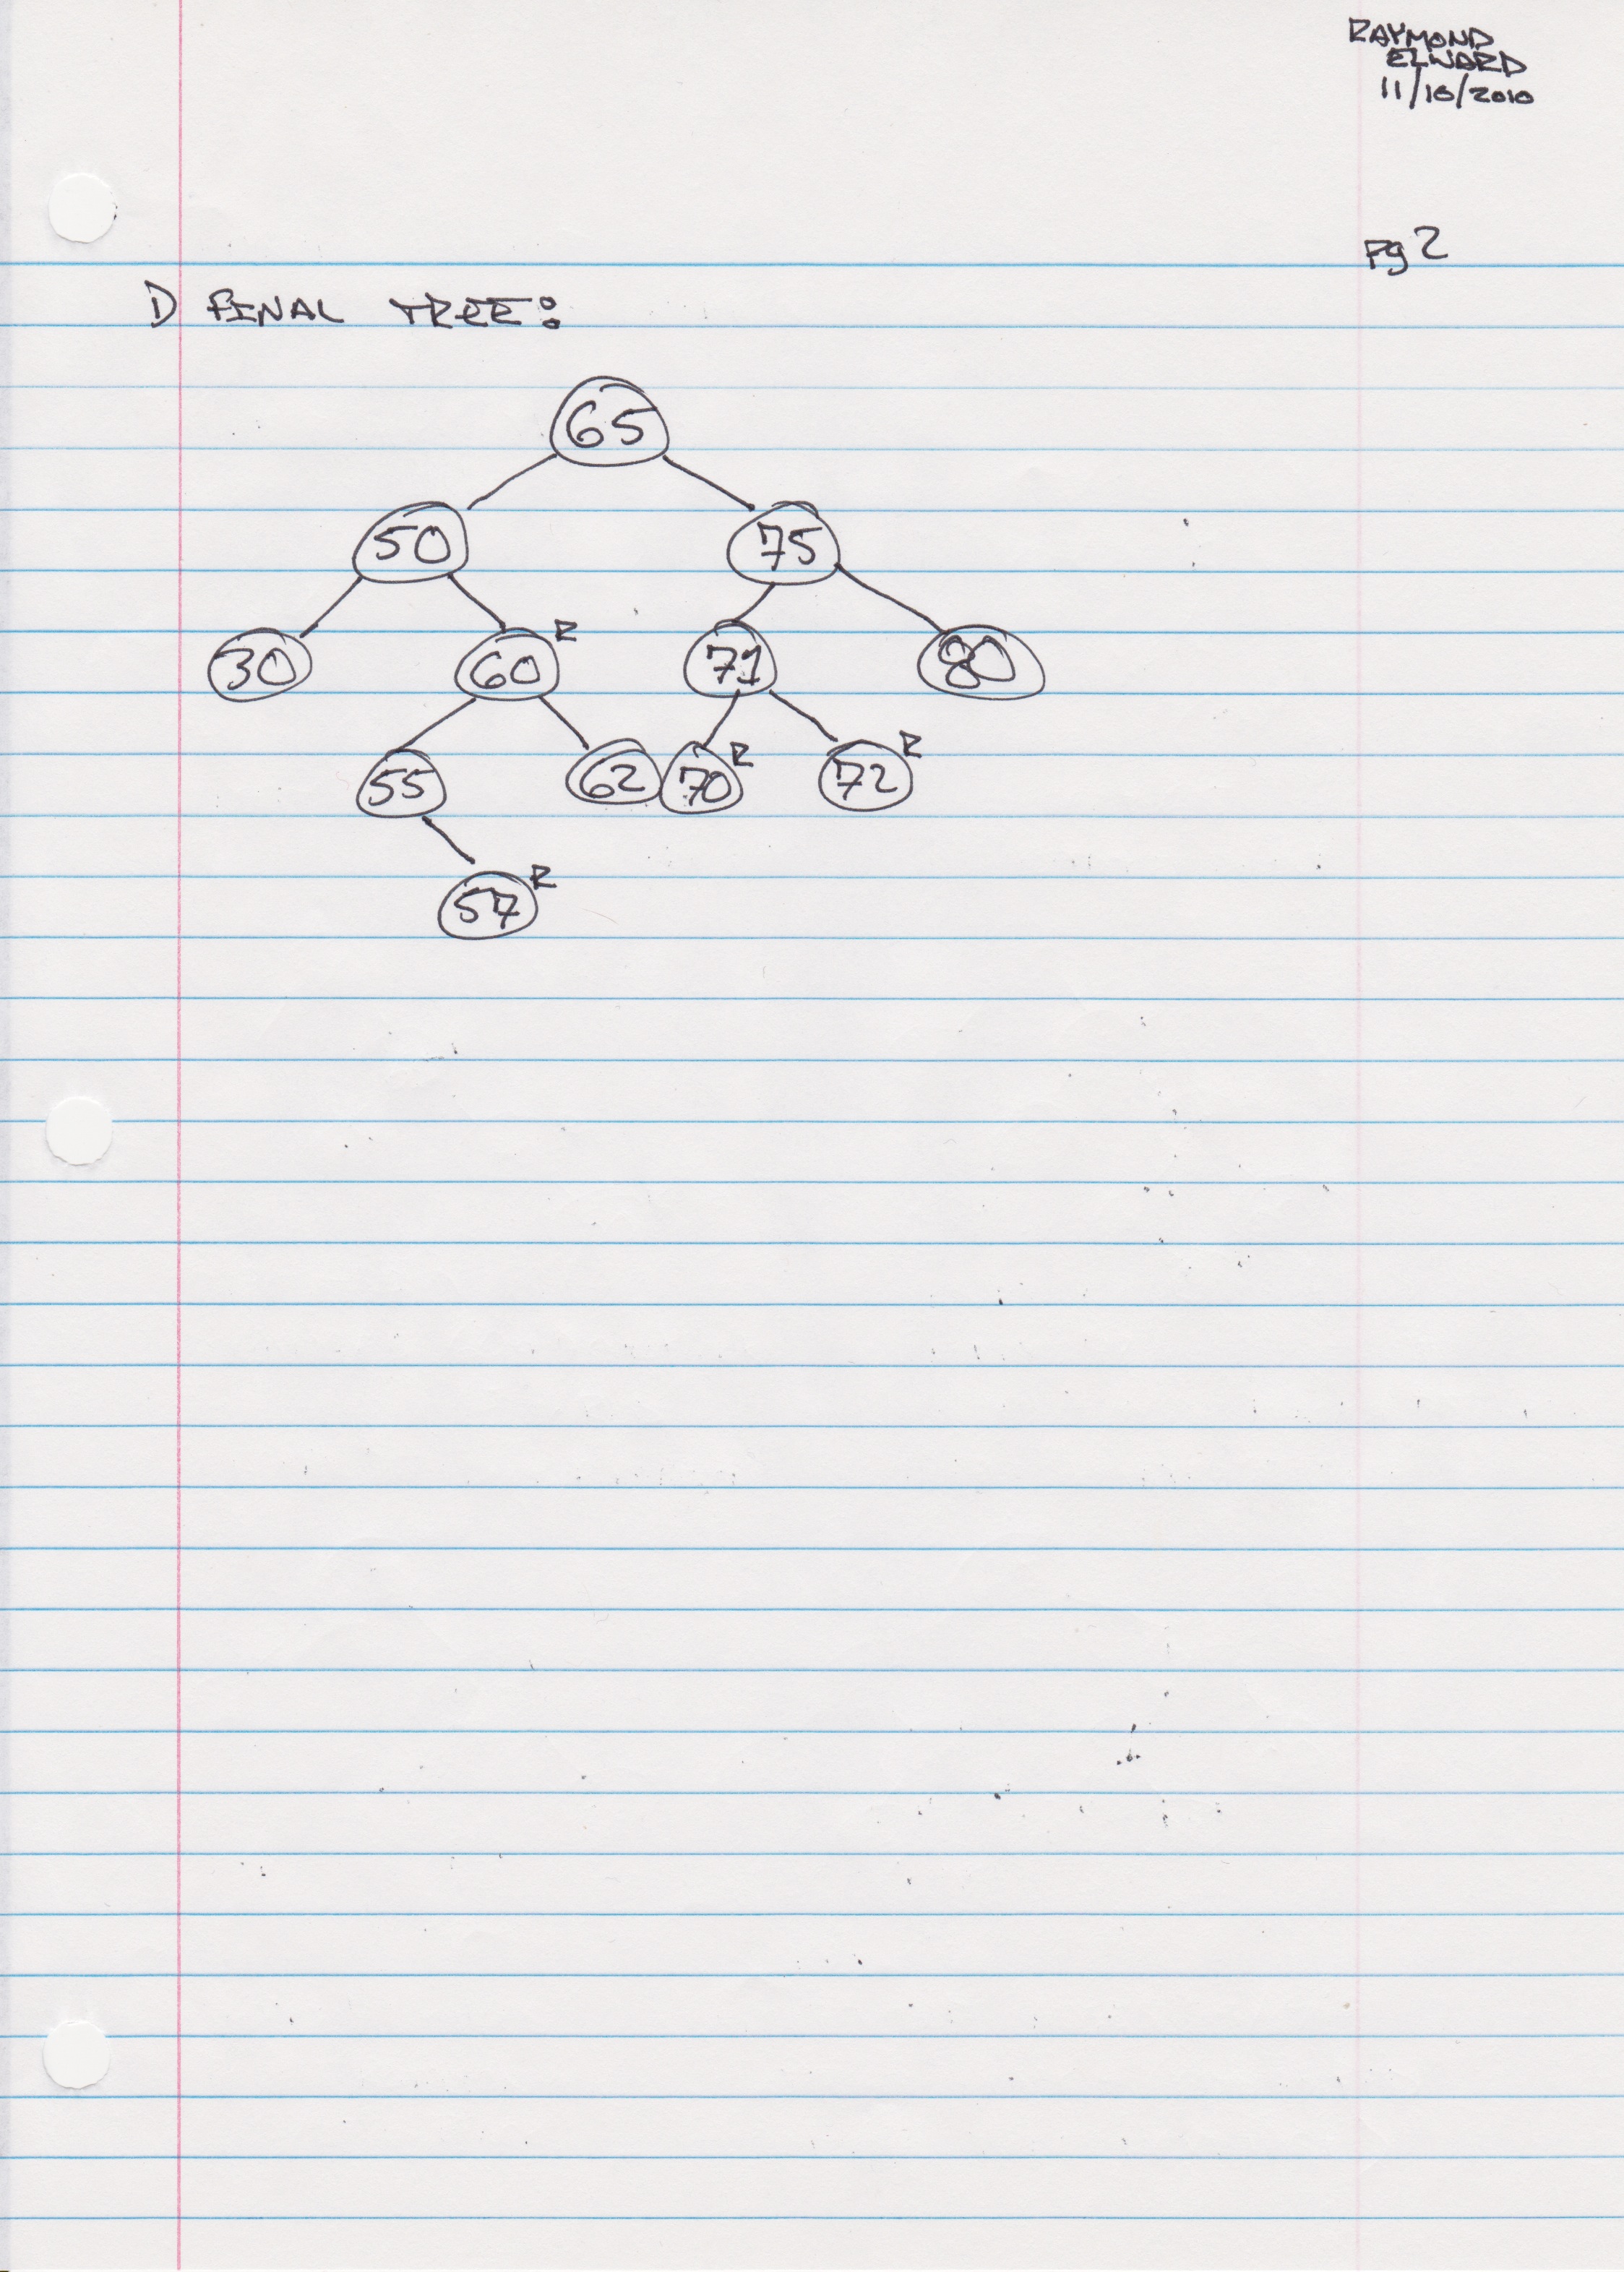 RAYMOND
ELWARD
11/10/2010
Pg 2
1) FINAL TREE:
65
50 75
30 60 R 71 80
55 62 70 R 72 R
57 R